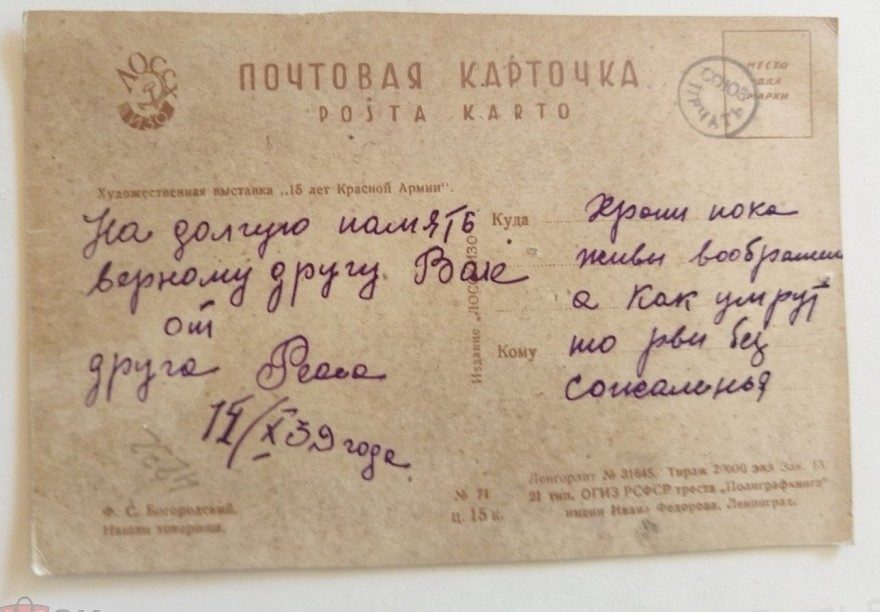 ЛОССХ
ИЗО
ПОЧТОВАЯ КАРТОЧКА
POŜTA KARTO
МЕСТО
ДЛЯ
МАРКИ
СОЮЗ
ПЕЧАТЬ
Художественная выставка „15 лет Красной Армии“.
На долгую память
верному другу Вале
от
друга
15/X 39 года
Издание „ЛОССХ ИЗО
Куда
Кому
Храни пока
живи воображени
а как умрут
то рви без
сожаленья
Ф. С. Богородский.
Нашли товарища.
№ 71
ц. 15 к.
Ленгорлит № 31645. Тираж 25000 экз Зак. 13
21 тип. ОГИЗ РСФСР треста „Полиграфкнига“
имени Ивана Федорова. Ленинград.